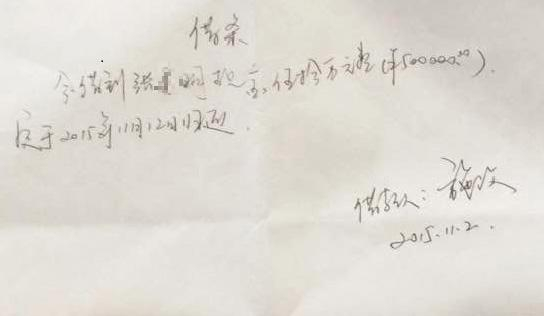 借条
今借到张 明现金: 伍拾万元整 (¥500000.00).
定于2015年11月12日归还.
借款人:
2015.11.2.